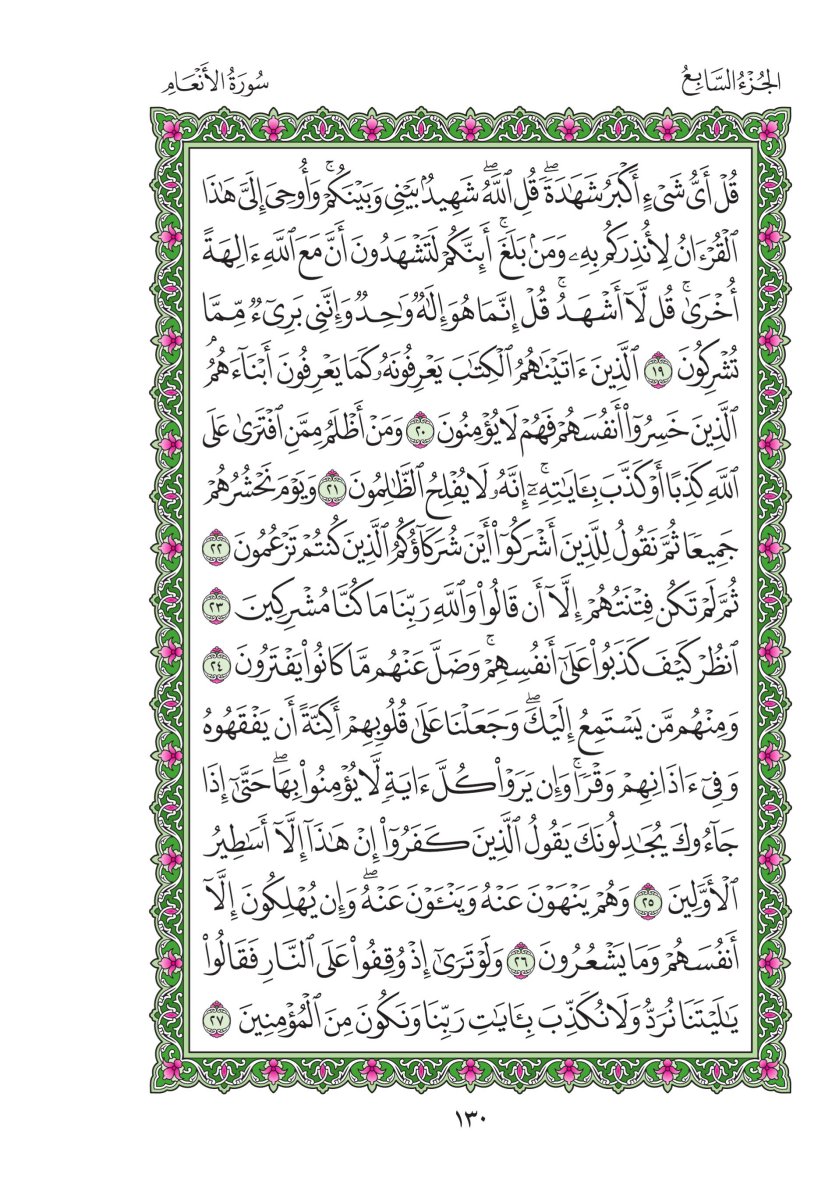 الجُزْءُ السَّابِعُ
سُورَةُ الأَنْعَامِ
قُلْ أَىُّ شَىْءٍ أَكْبَرُ شَهَٰدَةًۖ قُلِ ٱللَّهُۖ شَهِيدُۢ بَيْنِى وَبَيْنَكُمْۚ وَأُوحِىَ إِلَىَّ هَٰذَا
ٱلْقُرْءَانُ لِأُنذِرَكُم بِهِۦ وَمَنۢ بَلَغَۚ أَئِنَّكُمْ لَتَشْهَدُونَ أَنَّ مَعَ ٱللَّهِ ءَالِهَةً
أُخْرَىٰۚ قُل لَّآ أَشْهَدُۚ قُلْ إِنَّمَا هُوَ إِلَٰهٌ وَٰحِدٌ وَإِنَّنِى بَرِىٓءٌ مِّمَّا
تُشْرِكُونَ ١٩ ٱلَّذِينَ ءَاتَيْنَٰهُمُ ٱلْكِتَٰبَ يَعْرِفُونَهُۥ كَمَا يَعْرِفُونَ أَبْنَآءَهُمُ
ٱلَّذِينَ خَسِرُوٓا۟ أَنفُسَهُمْ فَهُمْ لَا يُؤْمِنُونَ ٢٠ وَمَنْ أَظْلَمُ مِمَّنِ ٱفْتَرَىٰ عَلَى
ٱللَّهِ كَذِبًا أَوْ كَذَّبَ بِـَٔايَٰتِهِۦٓۚ إِنَّهُۥ لَا يُفْلِحُ ٱلظَّٰلِمُونَ ٢١ وَيَوْمَ نَحْشُرُهُمْ
جَمِيعًا ثُمَّ نَقُولُ لِلَّذِينَ أَشْرَكُوٓا۟ أَيْنَ شُرَكَآؤُكُمُ ٱلَّذِينَ كُنتُمْ تَزْعُمُونَ ٢٢
ثُمَّ لَمْ تَكُن فِتْنَتُهُمْ إِلَّآ أَن قَالُوا۟ وَٱللَّهِ رَبِّنَا مَا كُنَّا مُشْرِكِينَ ٢٣
ٱنظُرْ كَيْفَ كَذَبُوا۟ عَلَىٰٓ أَنفُسِهِمْۚ وَضَلَّ عَنْهُم مَّا كَانُوا۟ يَفْتَرُونَ ٢٤
وَمِنْهُم مَّن يَسْتَمِعُ إِلَيْكَۖ وَجَعَلْنَا عَلَىٰ قُلُوبِهِمْ أَكِنَّةً أَن يَفْقَهُوهُ
وَفِىٓ ءَاذَانِهِمْ وَقْرًاۚ وَإِن يَرَوْا۟ كُلَّ ءَايَةٍ لَّا يُؤْمِنُوا۟ بِهَاۖ حَتَّىٰٓ إِذَا
جَآءُوكَ يُجَٰدِلُونَكَ يَقُولُ ٱلَّذِينَ كَفَرُوٓا۟ إِنْ هَٰذَآ إِلَّآ أَسَٰطِيرُ
ٱلْأَوَّلِينَ ٢٥ وَهُمْ يَنْهَوْنَ عَنْهُ وَيَنْـَٔوْنَ عَنْهُۖ وَإِن يُهْلِكُونَ إِلَّآ
أَنفُسَهُمْ وَمَا يَشْعُرُونَ ٢٦ وَلَوْ تَرَىٰٓ إِذْ وُقِفُوا۟ عَلَى ٱلنَّارِ فَقَالُوا۟
يَٰلَيْتَنَا نُرَدُّ وَلَا نُكَذِّبَ بِـَٔايَٰتِ رَبِّنَا وَنَكُونَ مِنَ ٱلْمُؤْمِنِينَ ٢٧
١٣٠